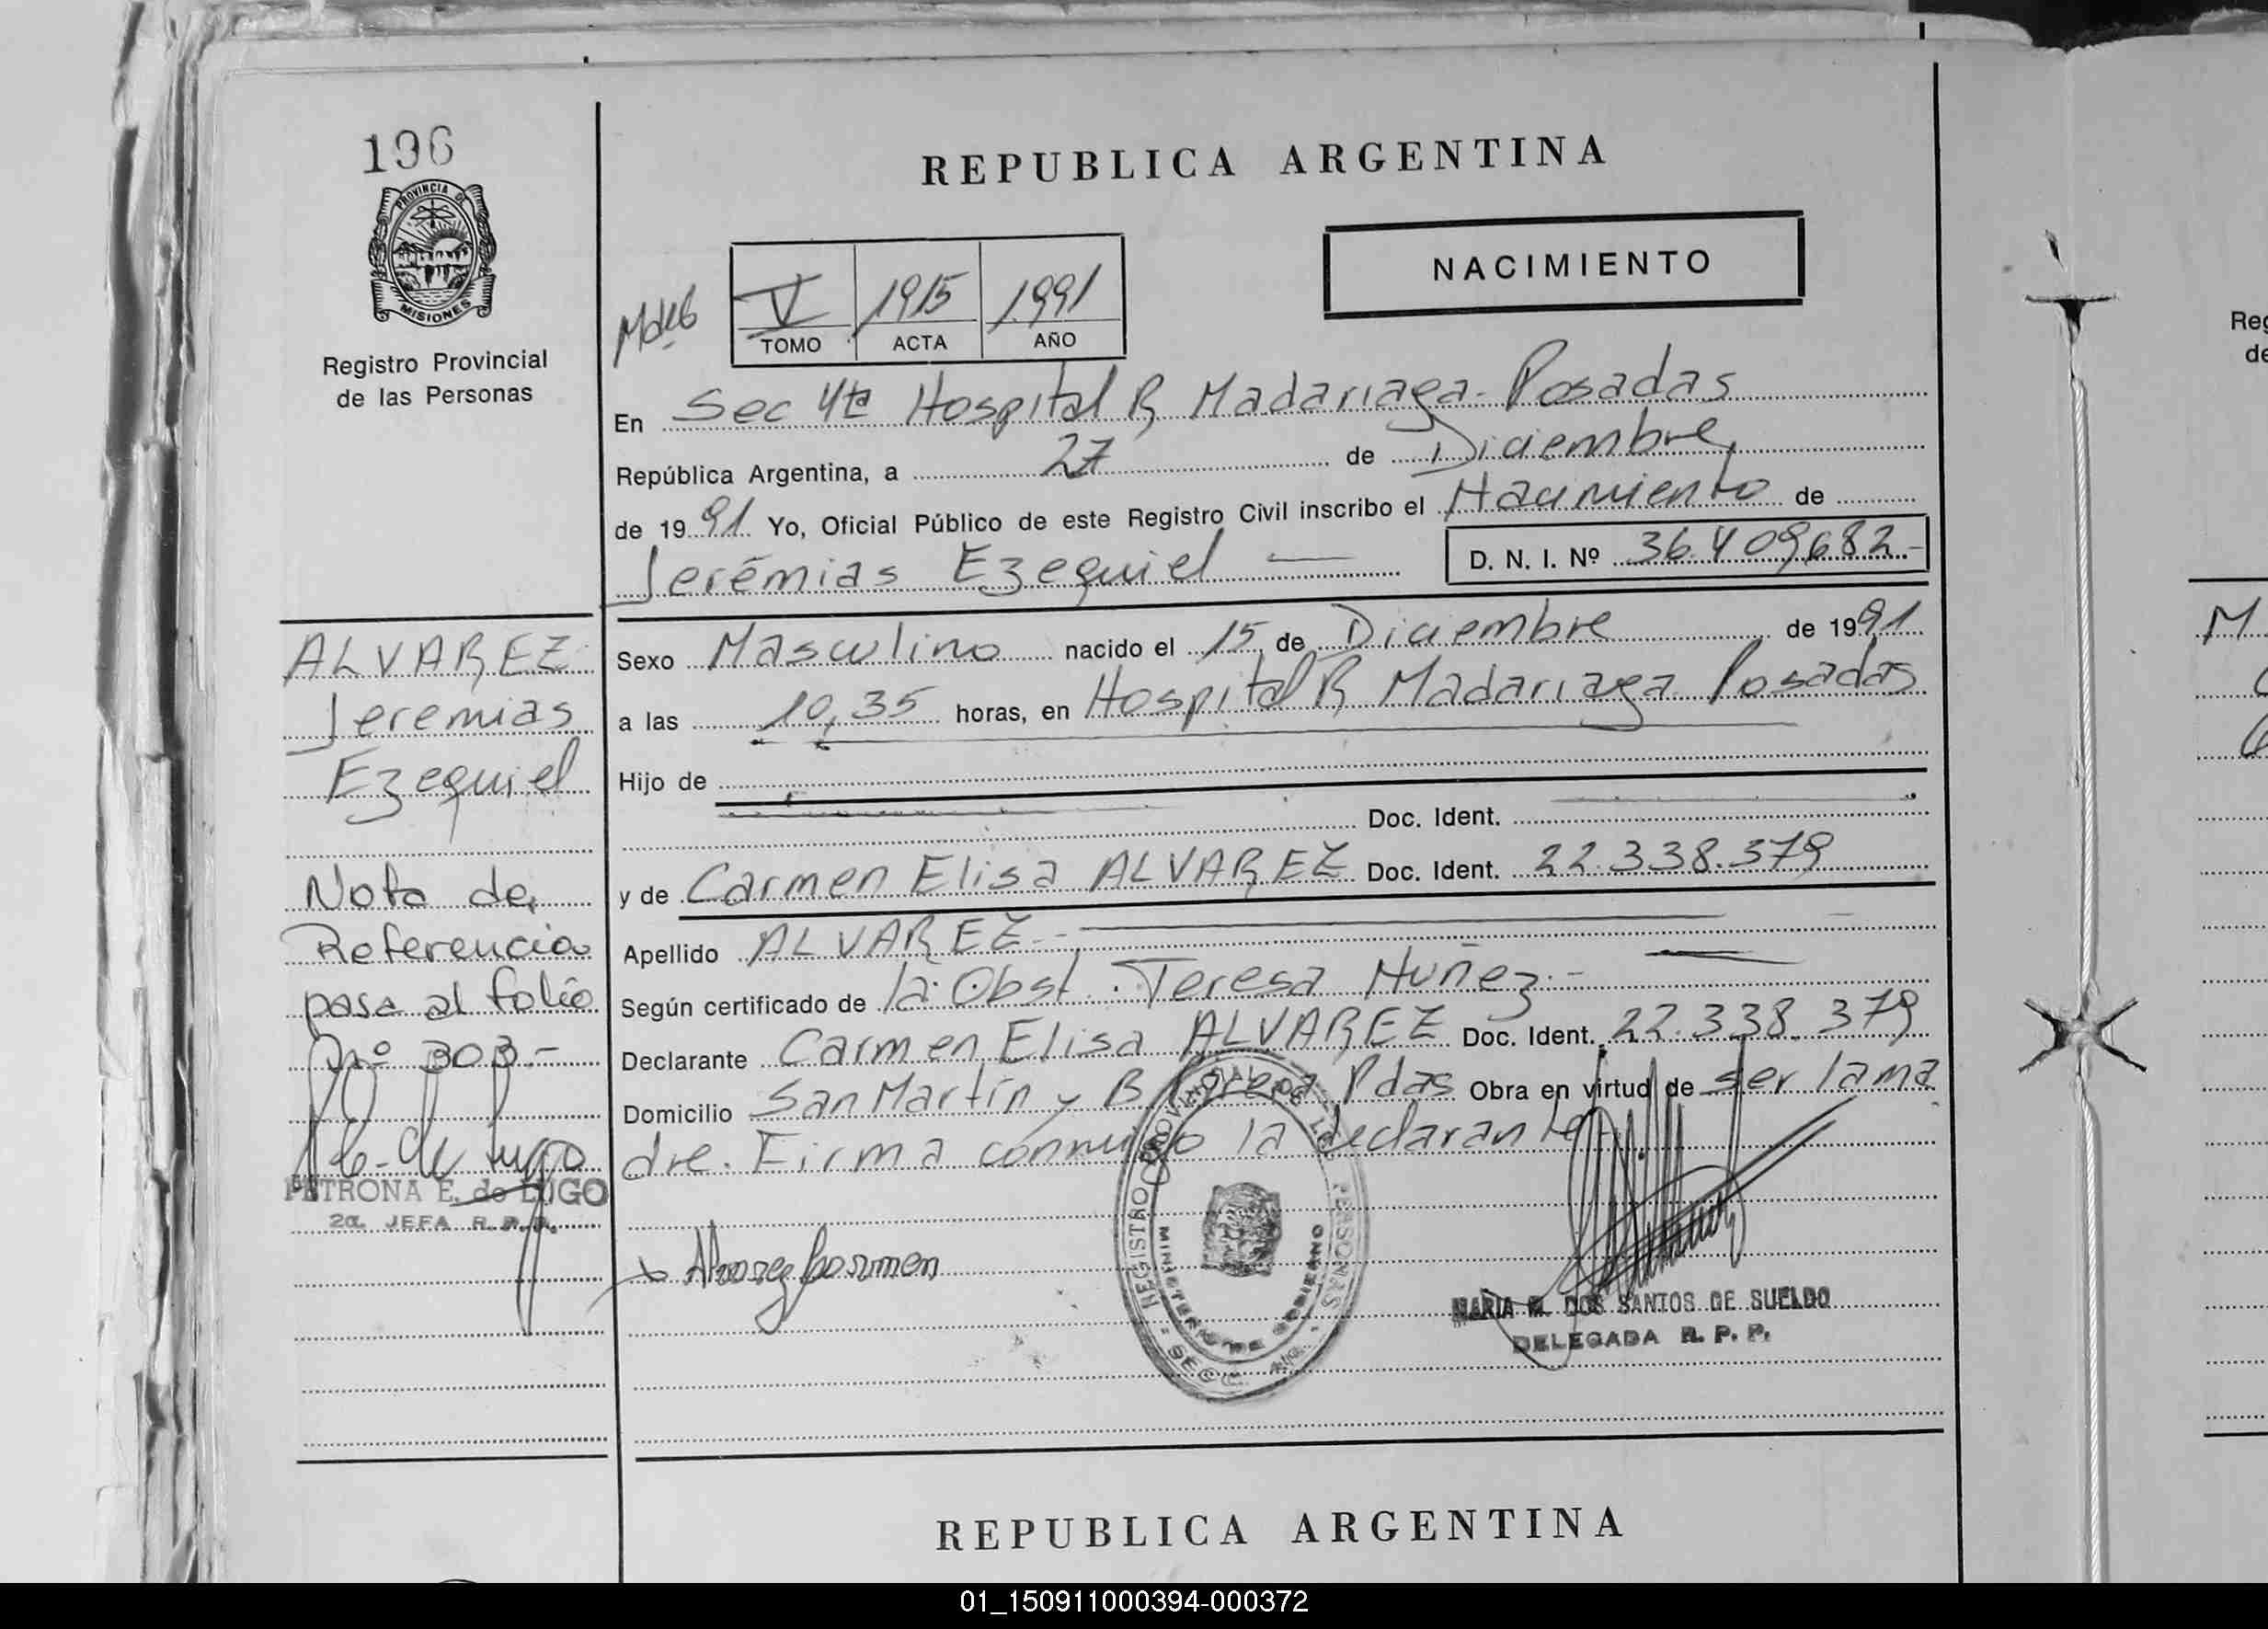 196
PROVINCIA DE
MISIONES
Registro Provincial
de las Personas
REPUBLICA ARGENTINA
NACIMIENTO
V 1915 1991
TOMO ACTA AÑO
En Sec 4ta Hospital R Madariaga - Posadas
República Argentina, a 27 de Diciembre
de 1991 Yo, Oficial Público de este Registro Civil inscribo el Nacimiento de
Jerémias Ezequiel — D. N. I. Nº 36.409,682-
Sexo Masculino nacido el 15 de Diciembre de 1991
a las 10,35 horas, en Hospital R Madariaga Posadas
Hijo de
Doc. Ident.
y de Carmen Elisa ALVAREZ Doc. Ident. 22.338.379
Apellido ALVAREZ -
Según certificado de la Obst. Teresa Nuñez.-
Declarante Carmen Elisa ALVAREZ Doc. Ident. 22.338.379
Domicilio San Martín y B Pdas Obra en virtud de ser la ma
dre. Firma conmigo la declarante
Alvarez Carmen
REGISTRO PROVINCIAL DE LAS PERSONAS
MINISTERIO DE GOBIERNO
SECC. 4ta
MARIA M. DOS SANTOS DE SUELDO
DELEGADA R. P. P.
ALVAREZ
Jeremias
Ezequiel
Nota de
Referencia
pasa al folio
Nº 303.-
PETRONA E. de LUGO
2a. JEFA R. P. P.
REPUBLICA ARGENTINA
Reg
de
M
01_150911000394-000372